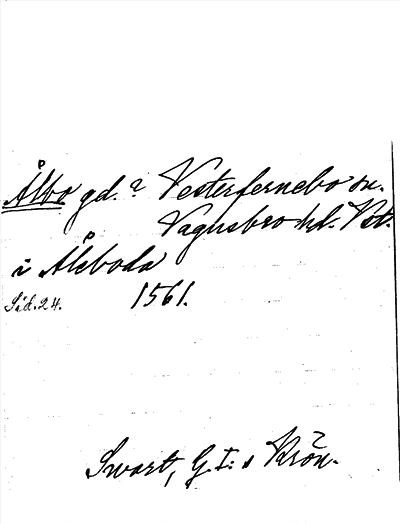 Ålbo gd.? Vesterfernebo sn.
Vagnsbro hd. Vstm.
i Åleboda
Sid. 24. 1561.
Swart, G. I:s Krön.